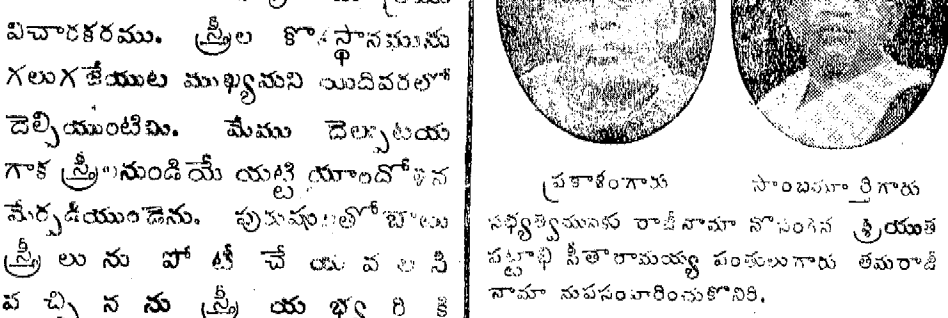 విచారకరము. స్త్రీల కొకస్థానమును
గలుగజేయుట ముఖ్యమని యిదివరలో
దెల్పియుంటిమి. మేము దెల్పుటయ
గాక స్త్రీలనుండియే యట్టి యాందోళన
మేర్పడియుండెను. పురుషులతో బాటు
స్త్రీ లు ను పో టీ చే యవలసి
వ చ్చి న ను స్త్రీ య భ్య ర్థి క
ప్రకాశంగారు
సాంబమూర్తిగారు
సభ్యత్వమునకు రాజీనామా నొసంగిన శ్రీయుత
పట్టాభి సీతారామయ్య పంతులుగారు తమరాజీ
నామా నుపసంహరించుకొనిరి.